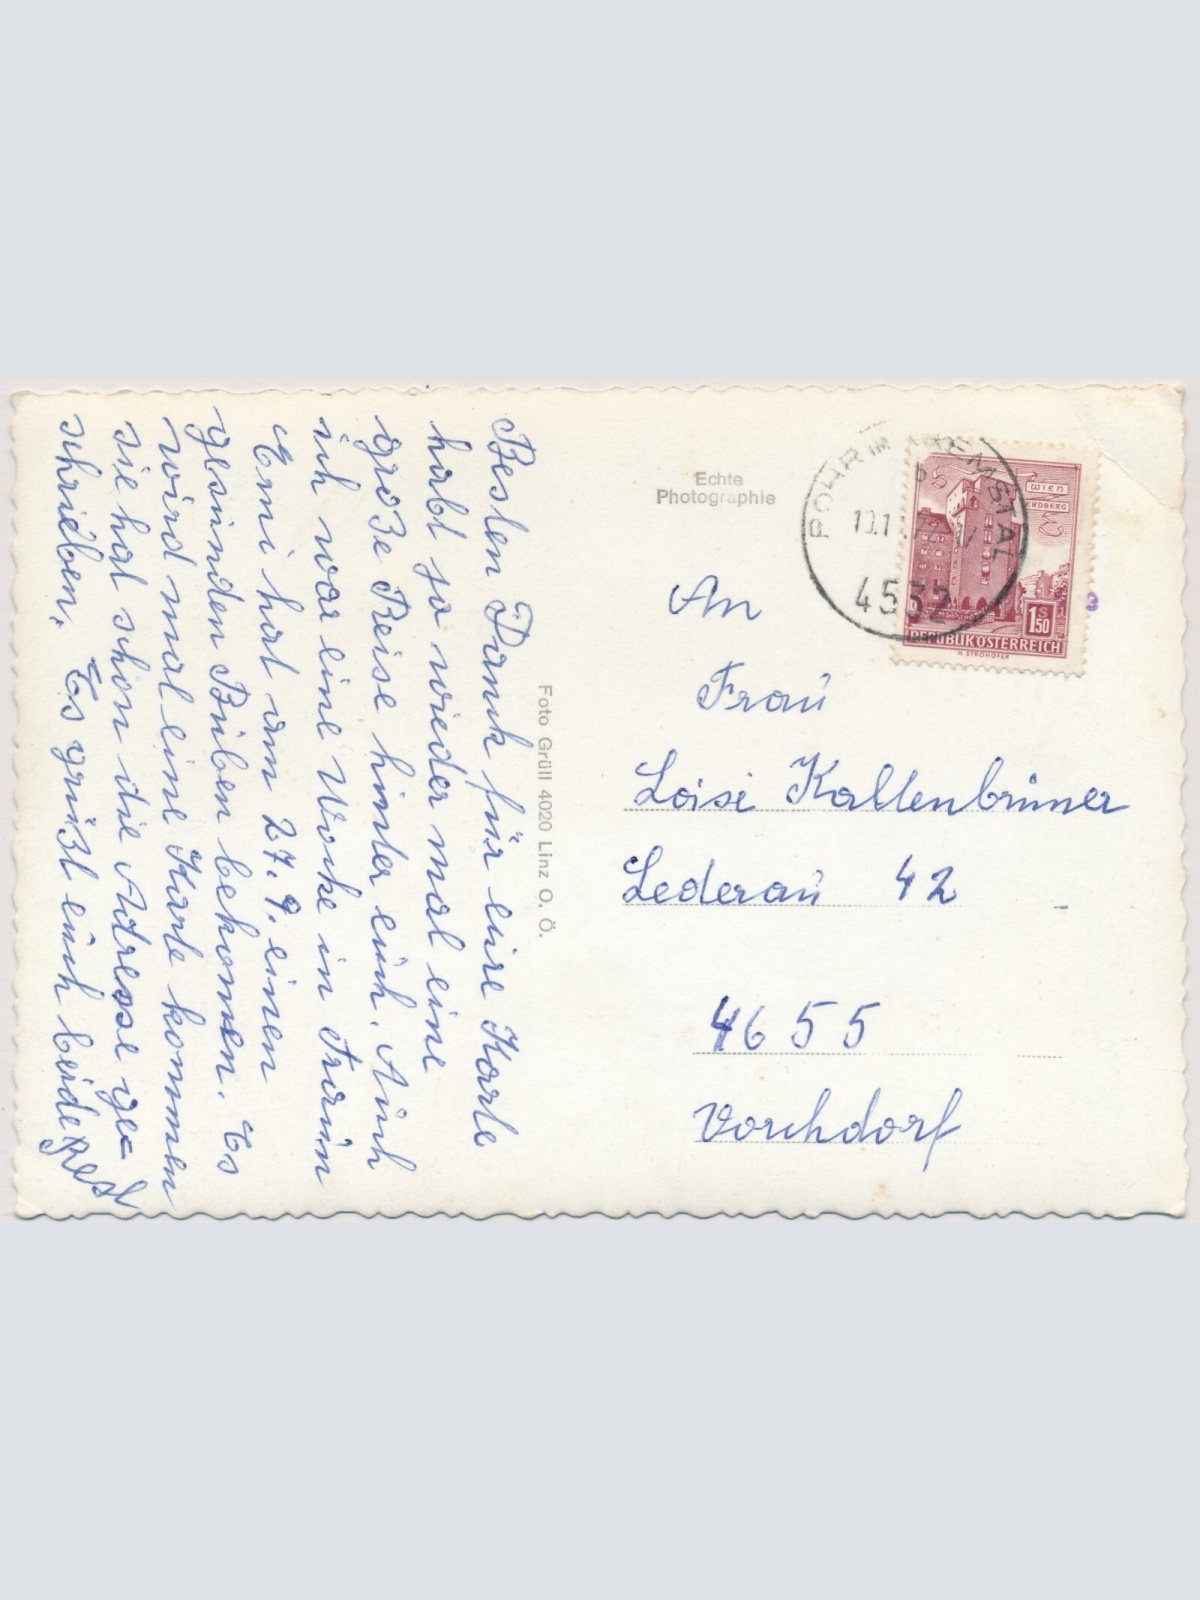 Besten Dank für eure Karte
habt ja wieder mal eine
große Reise hinter euch. Auch
ich war eine Woche in Traun
Emi hat am 27. 9. einen
gesunden Buben bekomen. Es
wird mal eine Karte kommen
sie hat schon die Adresse ge=
schrieben. Es grüßt euch beide Resl
Foto Grüll 4020 Linz O. Ö.
Echte
Photographie
ROHR IM KREMSTAL
4532
WIEN
ERDBERG
1S
50
REPUBLIK ÖSTERREICH
H. STROHOFER
An
Frau
Loisi Kaltenbruner
Lederau 42
4655
Vorchdorf